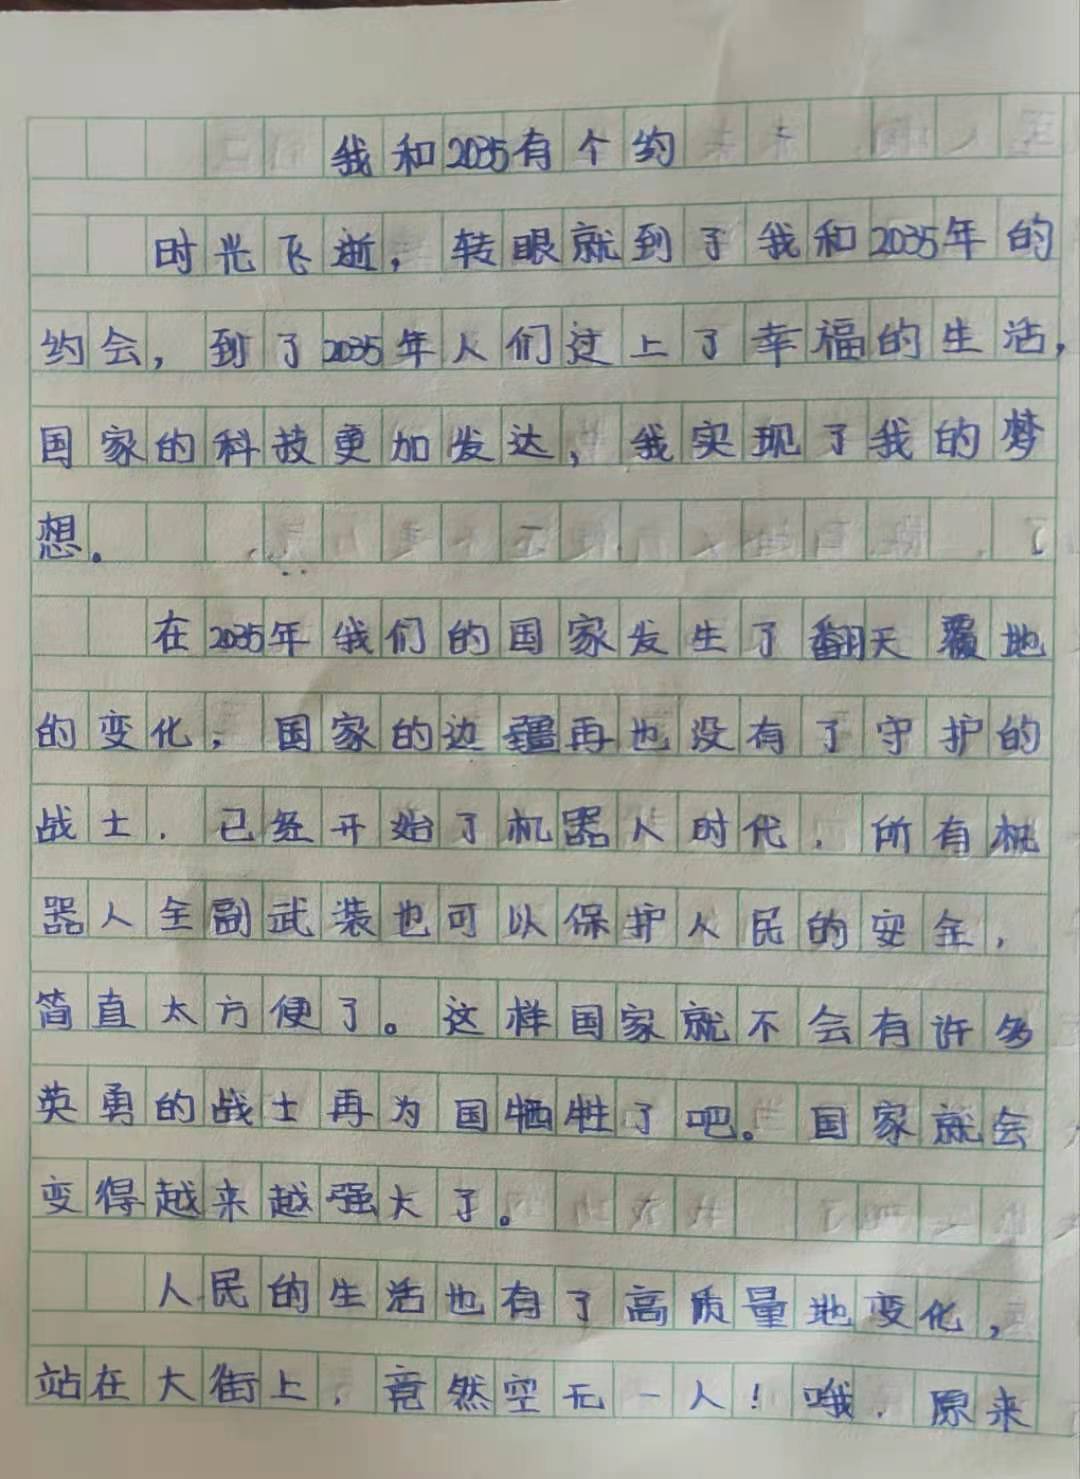 我和2035有个约
时光飞逝，转眼就到了我和2035年的
约会，到了2035年人们过上了幸福的生活，
国家的科技更加发达，我实现了我的梦
想。
在2035年我们的国家发生了翻天覆地
的变化，国家的边疆再也没有了守护的
战士，已经开始了机器人时代，所有机
器人全副武装也可以保护人民的安全，
简直太方便了。这样国家就不会有许多
英勇的战士再为国牺牲了吧。国家就会
变得越来越强大了。
人民的生活也有了高质量地变化，
站在大街上，竟然空无一人！哦，原来